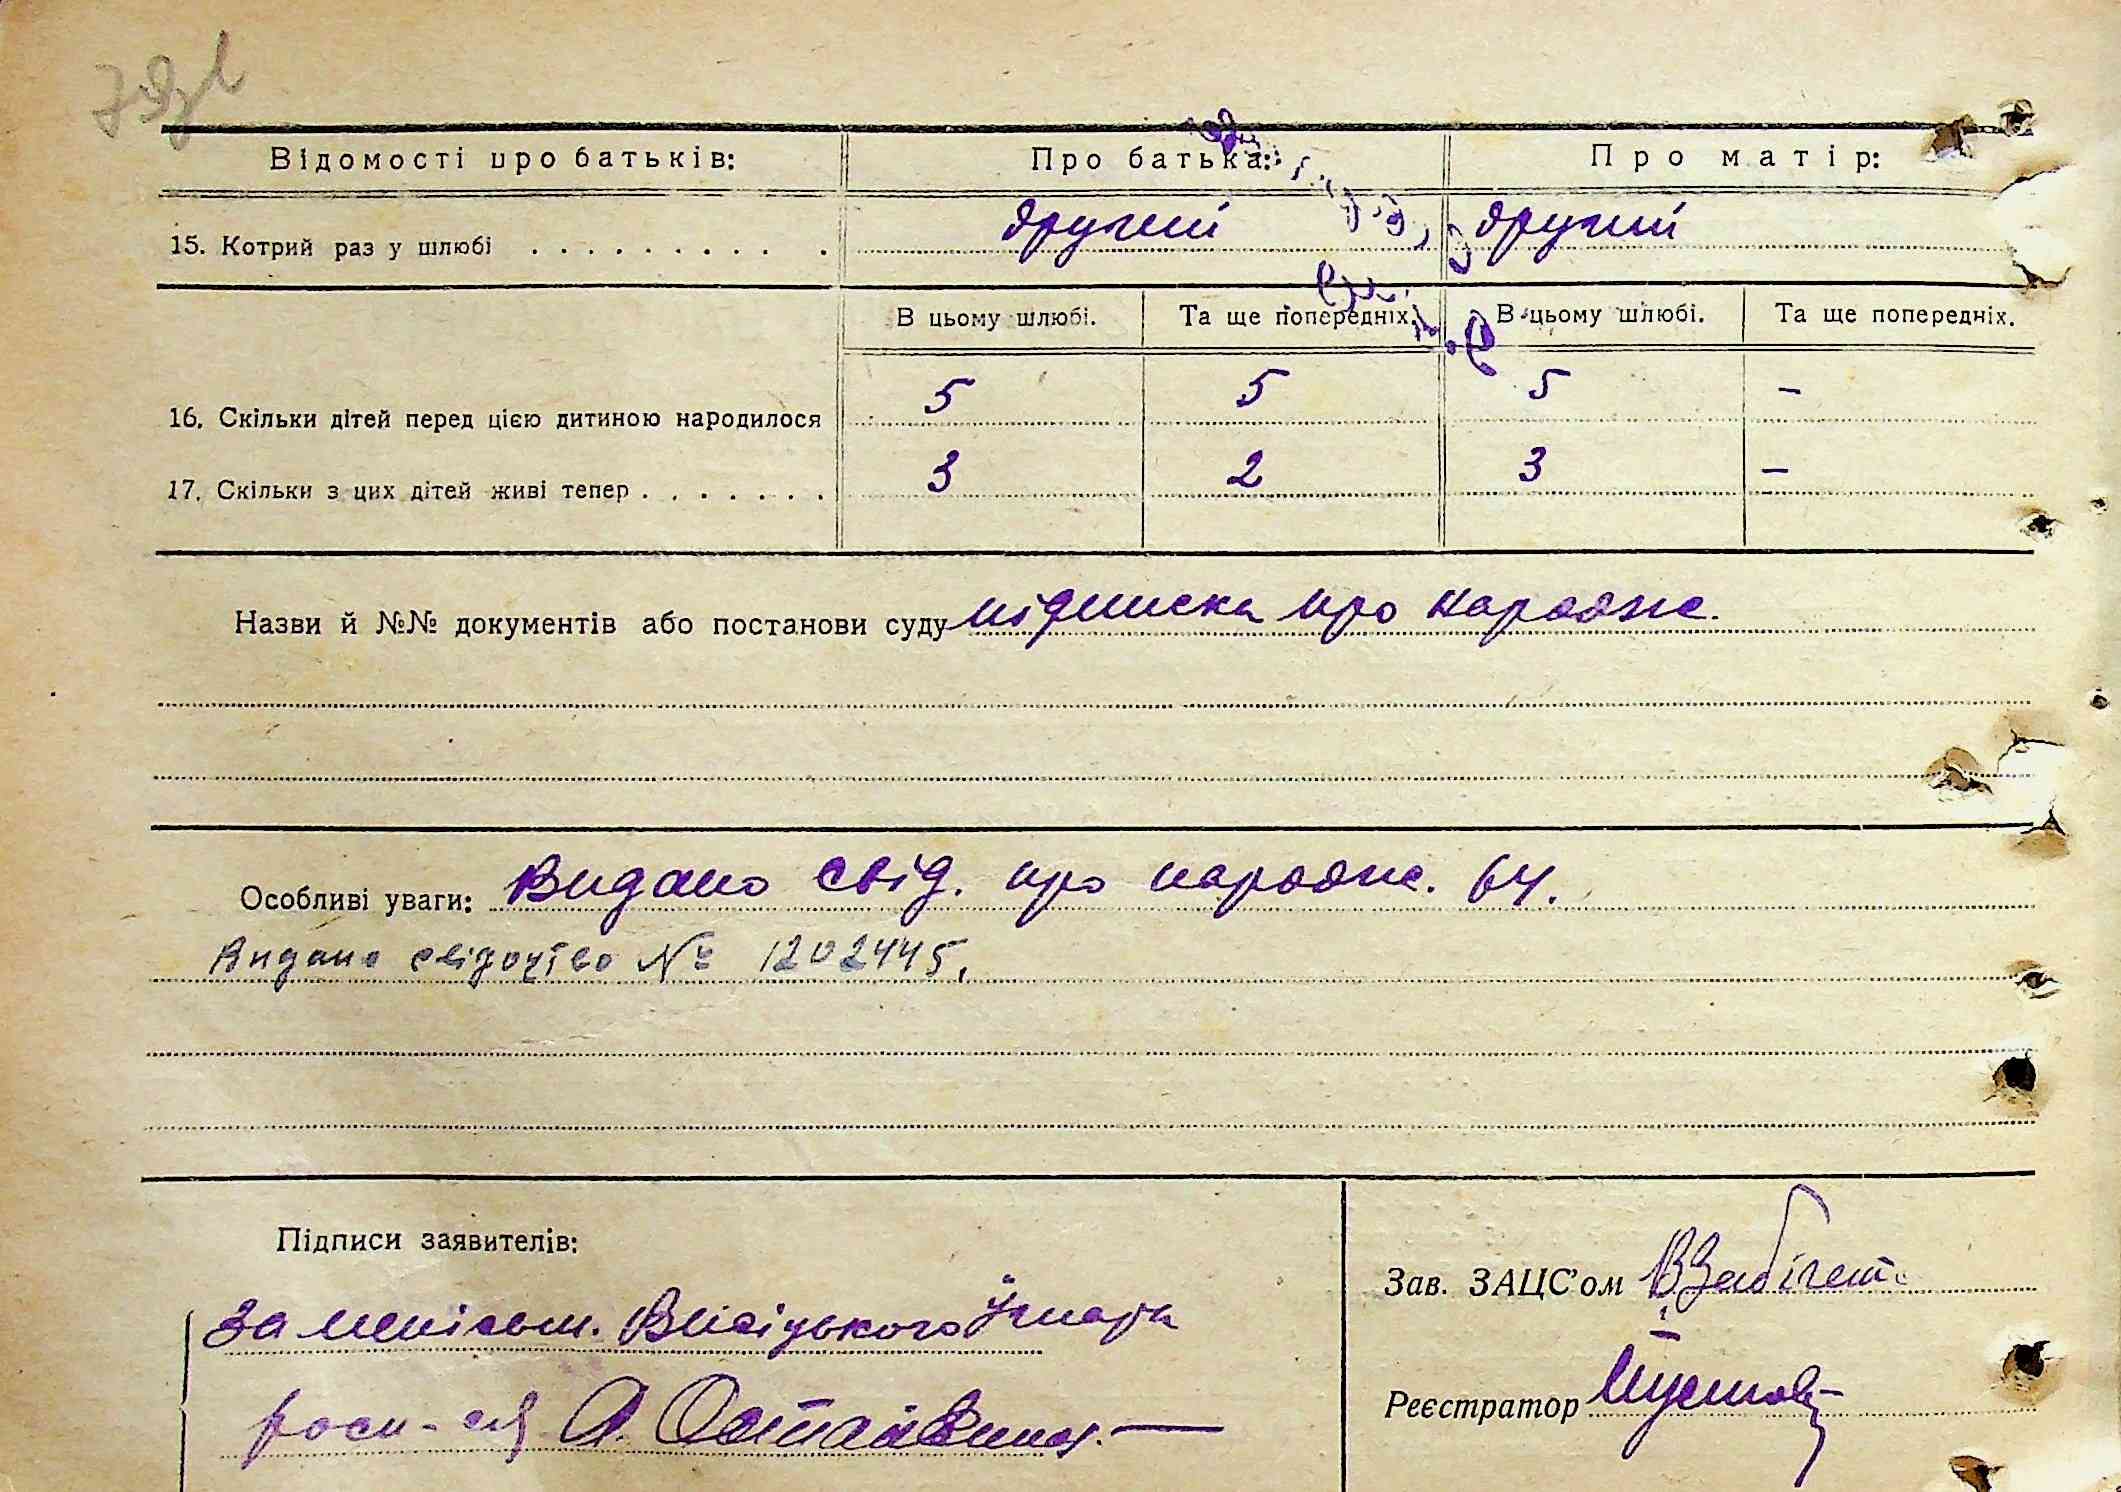 Відомості про батьків: Про батька: Про матір:
15. Котрий раз у шлюбі . . . . . . . . . . другий другий
В цьому шлюбі. Та ще попередніх. В цьому шлюбі. Та ще попередніх.
16. Скільки дітей перед цією дитиною народилося 5 5 5 –
17. Скільки з цих дітей живі тепер . . . . . . . 3 2 3 –
Назви й №№ документів або постанови суду підписка про народж.
Особливі уваги: Видано свід. про народж. 64.
Видано свідоцтво № 1202445.
Підписи заявителів:
За неписьм. Висіцького
Зав. ЗАЦС'ом
роспи-ся А.
Реєстратор